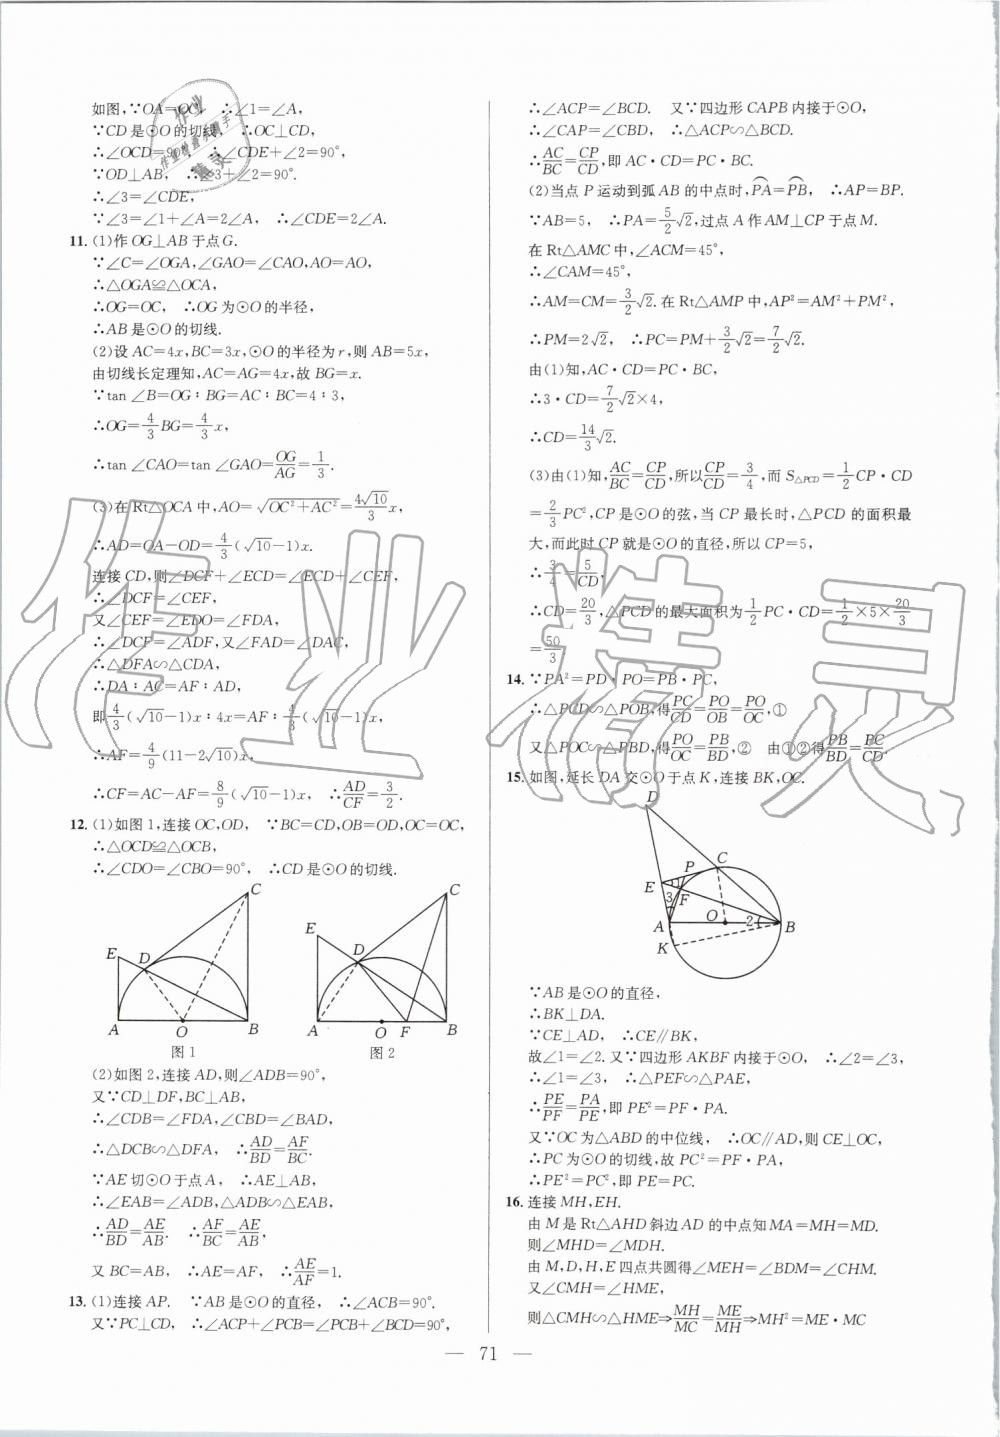 如图,∵OA=OC, ∴∠1=∠A,
∵CD是⊙O的切线, ∴OC⊥CD,
∴∠OCD=90°, ∴∠CDE+∠2=90°,
∵OD⊥AB, ∴∠3+∠2=90°.
∴∠3=∠CDE,
∵∠3=∠1+∠A=2∠A, ∴∠CDE=2∠A.
11.(1)作OG⊥AB于点G.
∵∠C=∠OGA,∠GAO=∠CAO,AO=AO,
∴△OGA≌△OCA,
∴OG=OC, ∴OG为⊙O的半径,
∴AB是⊙O的切线.
(2)设AC=4x,BC=3x,⊙O的半径为r,则AB=5x,
由切线长定理知,AC=AG=4x,故BG=x.
∵tan∠B=OG∶BG=AC∶BC=4∶3,
∴OG=4/3BG=4/3x,
∴tan∠CAO=tan∠GAO=OG/AG=1/3.
(3)在Rt△OCA中,AO=√(OC²+AC²)=4√10/3x,
∴AD=OA-OD=4/3(√10-1)x.
连接CD,则∠DCF+∠ECD=∠ECD+∠CEF,
∴∠DCF=∠CEF,
又∠CEF=∠EDO=∠FDA,
∴∠DCF=∠ADF,又∠FAD=∠DAC,
∴△DFA∽△CDA,
∴DA∶AC=AF∶AD,
即4/3(√10-1)x∶4x=AF∶4/3(√10-1)x,
∴AF=4/9(11-2√10)x,
∴CF=AC-AF=8/9(√10-1)x, ∴AD/CF=3/2.
12.(1)如图1,连接OC,OD, ∵BC=CD,OB=OD,OC=OC,
∴△OCD≌△OCB,
∴∠CDO=∠CBO=90°, ∴CD是⊙O的切线.
C
E
D
A
O
B
图1
C
E
D
A
O
F
B
图2
(2)如图2,连接AD,则∠ADB=90°,
又∵CD⊥DF,BC⊥AB,
∴∠CDB=∠FDA,∠CBD=∠BAD,
∴△DCB∽△DFA, ∴AD/BD=AF/BC.
∵AE切⊙O于点A, ∴AE⊥AB,
∴∠EAB=∠ADB,△ADB∽△EAB,
∴AD/BD=AE/AB. ∴AF/BC=AE/AB.
又BC=AB, ∴AE=AF, ∴AE/AF=1.
13.(1)连接AP. ∵AB是⊙O的直径, ∴∠ACB=90°.
又∵PC⊥CD, ∴∠ACP+∠PCB=∠PCB+∠BCD=90°,
∴∠ACP=∠BCD. 又∵四边形CAPB内接于⊙O,
∴∠CAP=∠CBD, ∴△ACP∽△BCD.
∴AC/BC=CP/CD,即AC·CD=PC·BC.
(2)当点P运动到弧AB的中点时,PA=PB, ∴AP=BP.
∵AB=5, ∴PA=5/2√2,过点A作AM⊥CP于点M.
在Rt△AMC中,∠ACM=45°,
∴∠CAM=45°,
∴AM=CM=3/2√2.在Rt△AMP中,AP²=AM²+PM²,
∴PM=2√2, ∴PC=PM+3/2√2=7/2√2.
由(1)知,AC·CD=PC·BC,
∴3·CD=7/2√2×4,
∴CD=14/3√2.
(3)由(1)知,AC/BC=CP/CD,所以CP/CD=3/4,而S△PCD=1/2CP·CD
=2/3PC²,CP是⊙O的弦,当CP最长时,△PCD的面积最
大,而此时CP就是⊙O的直径,所以CP=5,
∴3/4=5/CD.
∴CD=20/3,△PCD的最大面积为1/2PC·CD=1/2×5×20/3
=50/3
14.∵PA²=PD·PO=PB·PC,
∴△PCD∽△POB,得PC/CD=PO/OB=PO/OC,①
又△POC∽△PBD,得PO/OC=PB/BD,② 由①②得PB/BD=PC/CD.
15.如图,延长DA交⊙O于点K,连接BK,OC.
D
P
C
E
1
F
3
A
O
2
B
K
∵AB是⊙O的直径,
∴BK⊥DA.
∵CE⊥AD, ∴CE∥BK,
故∠1=∠2.又∵四边形AKBF内接于⊙O, ∴∠2=∠3,
∴∠1=∠3, ∴△PEF∽△PAE,
∴PE/PF=PA/PE,即PE²=PF·PA.
又∵OC为△ABD的中位线, ∴OC∥AD,则CE⊥OC,
∴PC为⊙O的切线,故PC²=PF·PA,
∴PE²=PC²,即PE=PC.
16.连接MH,EH.
由M是Rt△AHD斜边AD的中点知MA=MH=MD.
则∠MHD=∠MDH.
由M,D,H,E四点共圆得∠MEH=∠BDM=∠CHM.
又∠CMH=∠HME,
则△CMH∽△HME⇒MH/MC=ME/MH⇒MH²=ME·MC
— 71 —
作业精灵